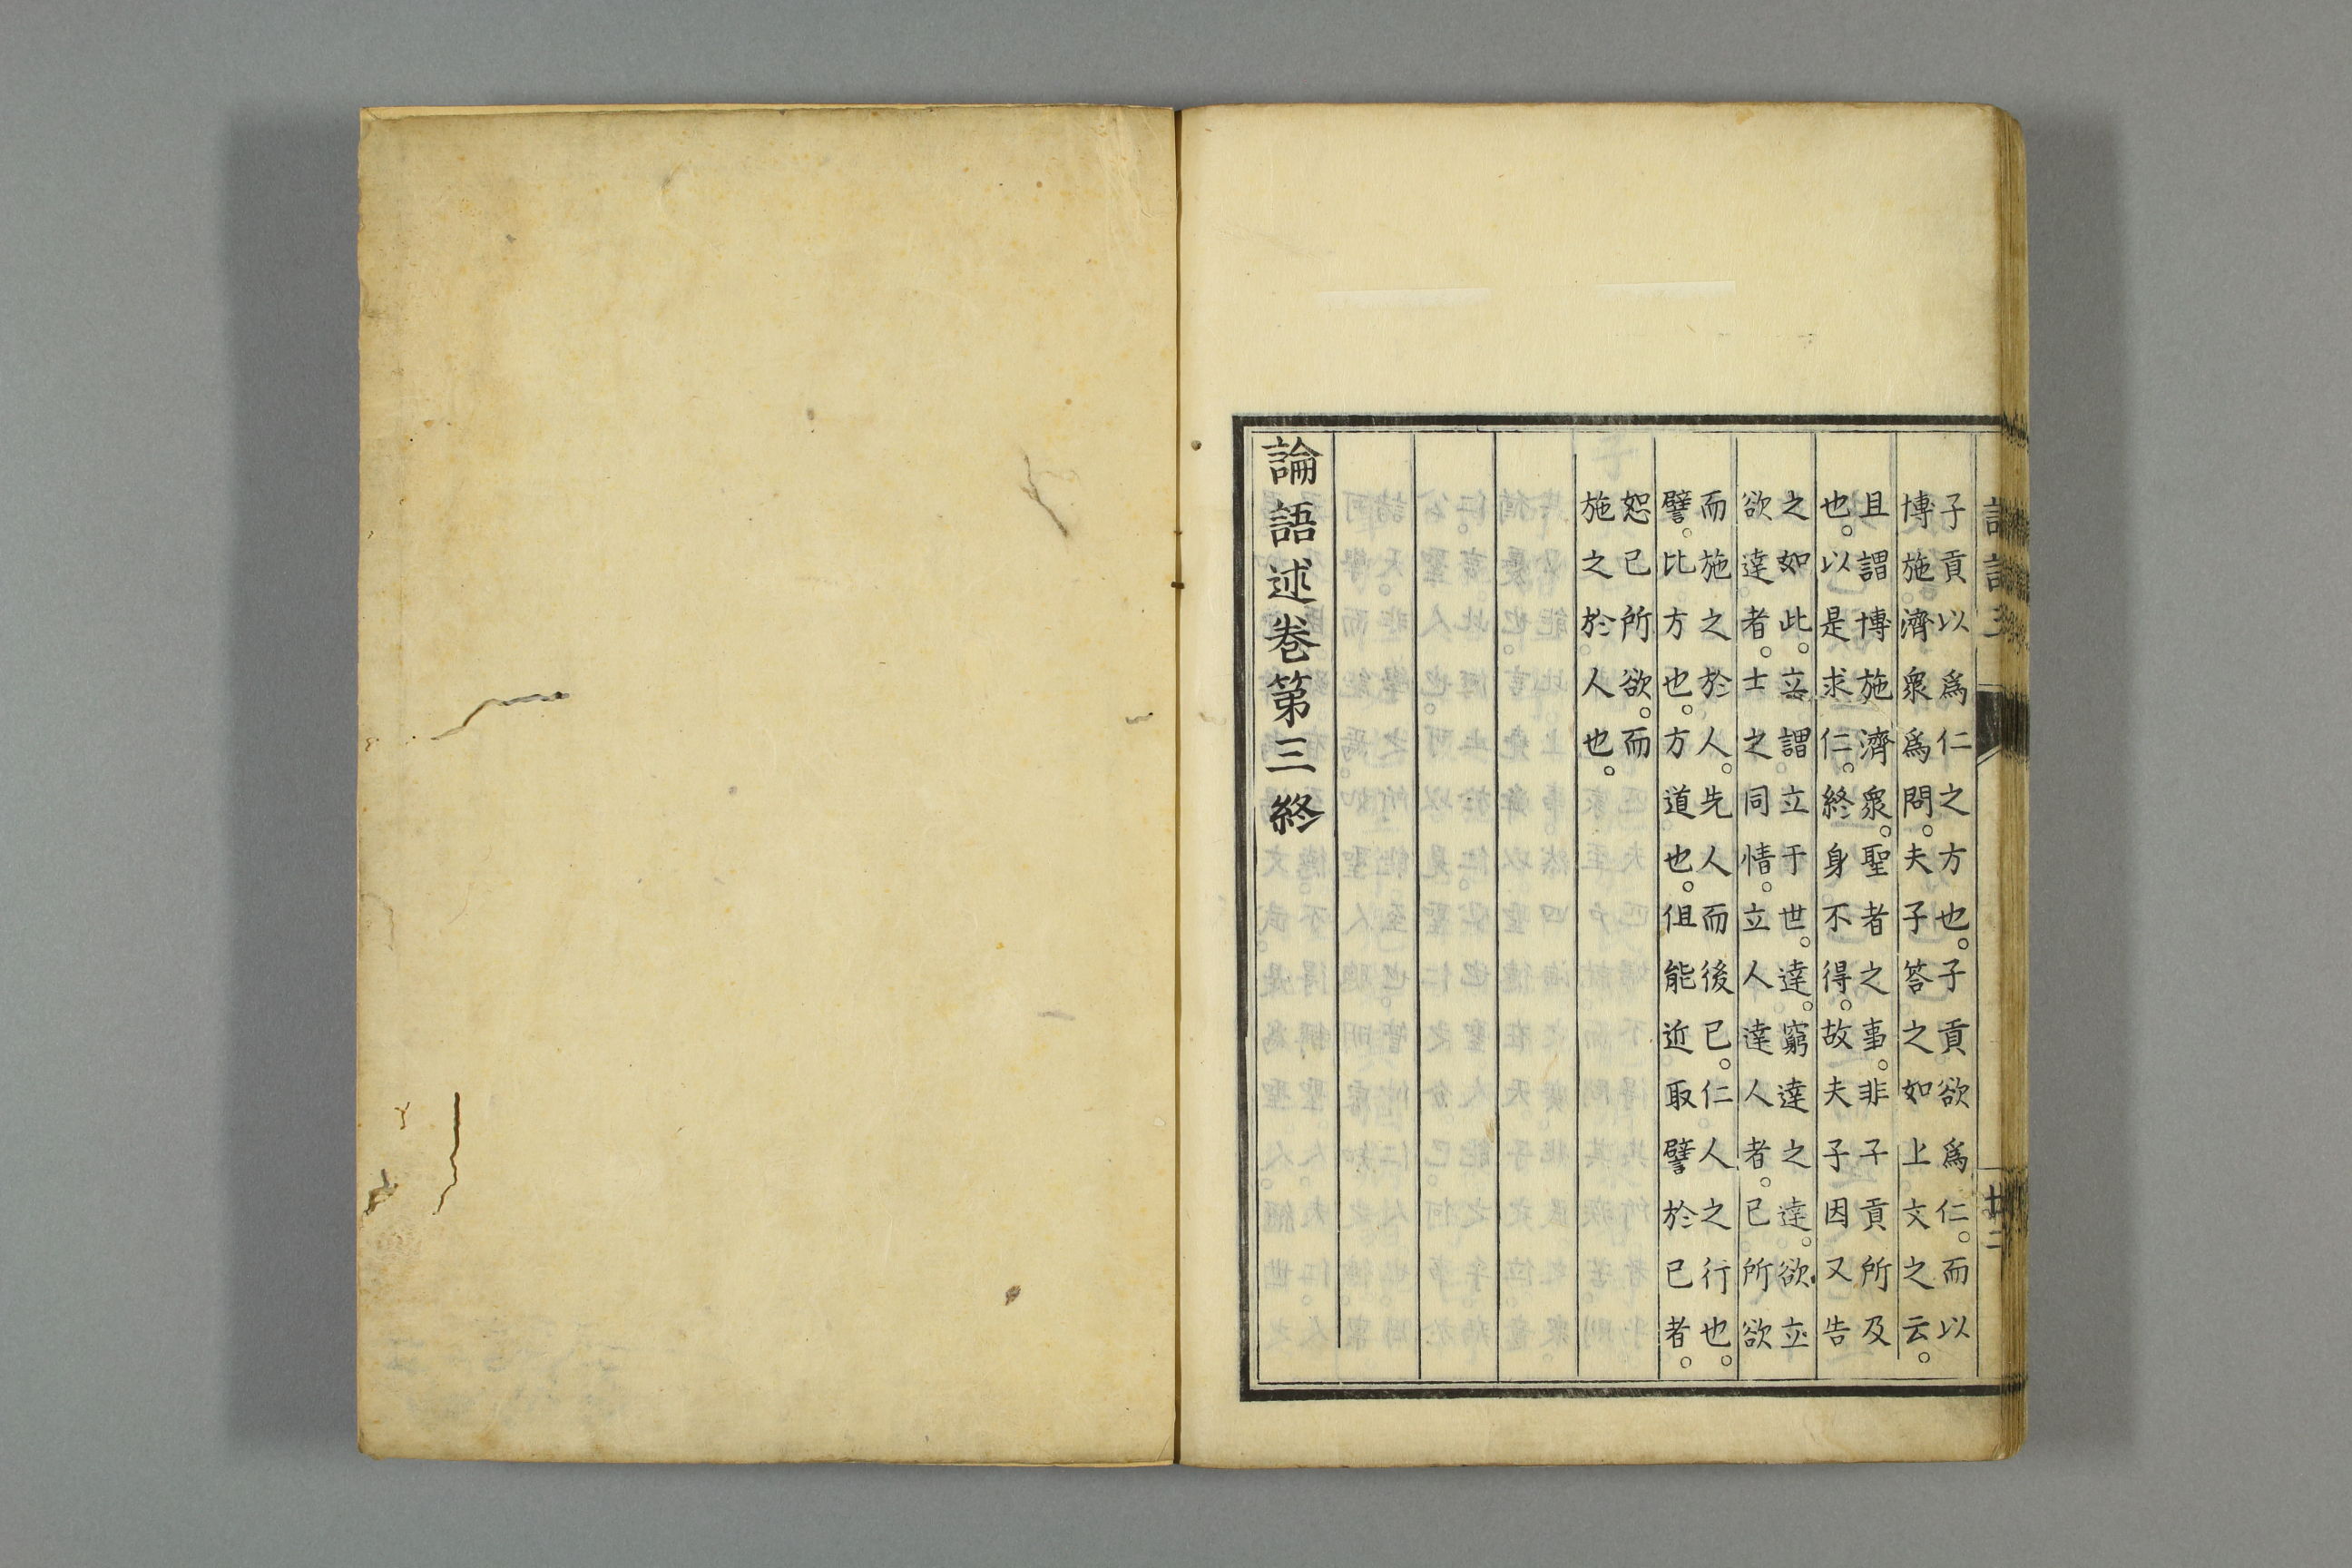 子貢以爲仁之方也。子貢欲爲仁。而以
博施濟衆爲問。夫子答之如上文之云。
且謂博施濟衆。聖者之事。非子貢所及
也。以是求仁。終身不得。故夫子因又告
之如此。立。謂立于世。達。窮達之達。欲立
欲達者。士之同情。立人達人者。已所欲
而施之於人。先人而後已。仁人之行也。
譬。比方也。方道也。但能近取譬於已者。
恕已所欲。而
施之於人也。
論語述卷第三終
廿二